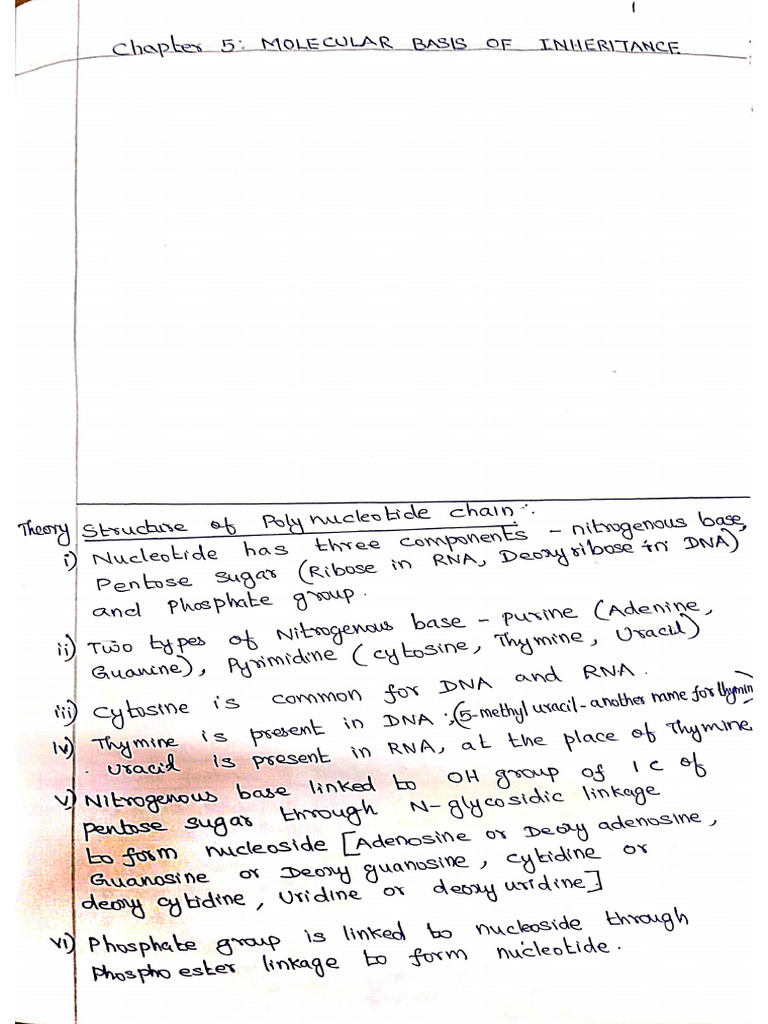 1
Chapter 5: MOLECULAR BASIS OF INHERITANCE
Theory Structure of Polynucleotide chain :
i) Nucleotide has three components - nitrogenous base,
Pentose sugar (Ribose in RNA, Deoxyribose in DNA)
and Phosphate group.
ii) Two types of Nitrogenous base - purine (Adenine,
Guanine), Pyrimidine (cytosine, Thymine, Uracil)
iii) Cytosine is common for DNA and RNA.
iv) Thymine is present in DNA; (5-methyl uracil - another name for thymin)
. Uracil is present in RNA, at the place of Thymine
v) Nitrogenous base linked to OH group of 1 C of
pentose sugar through N-glycosidic linkage
to form nucleoside [Adenosine or Deoxy adenosine,
Guanosine or Deoxy guanosine, cytidine or
deoxy cytidine, Uridine or deoxy uridine].
vi) Phosphate group is linked to nucleoside through
Phospho ester linkage to form nucleotide.